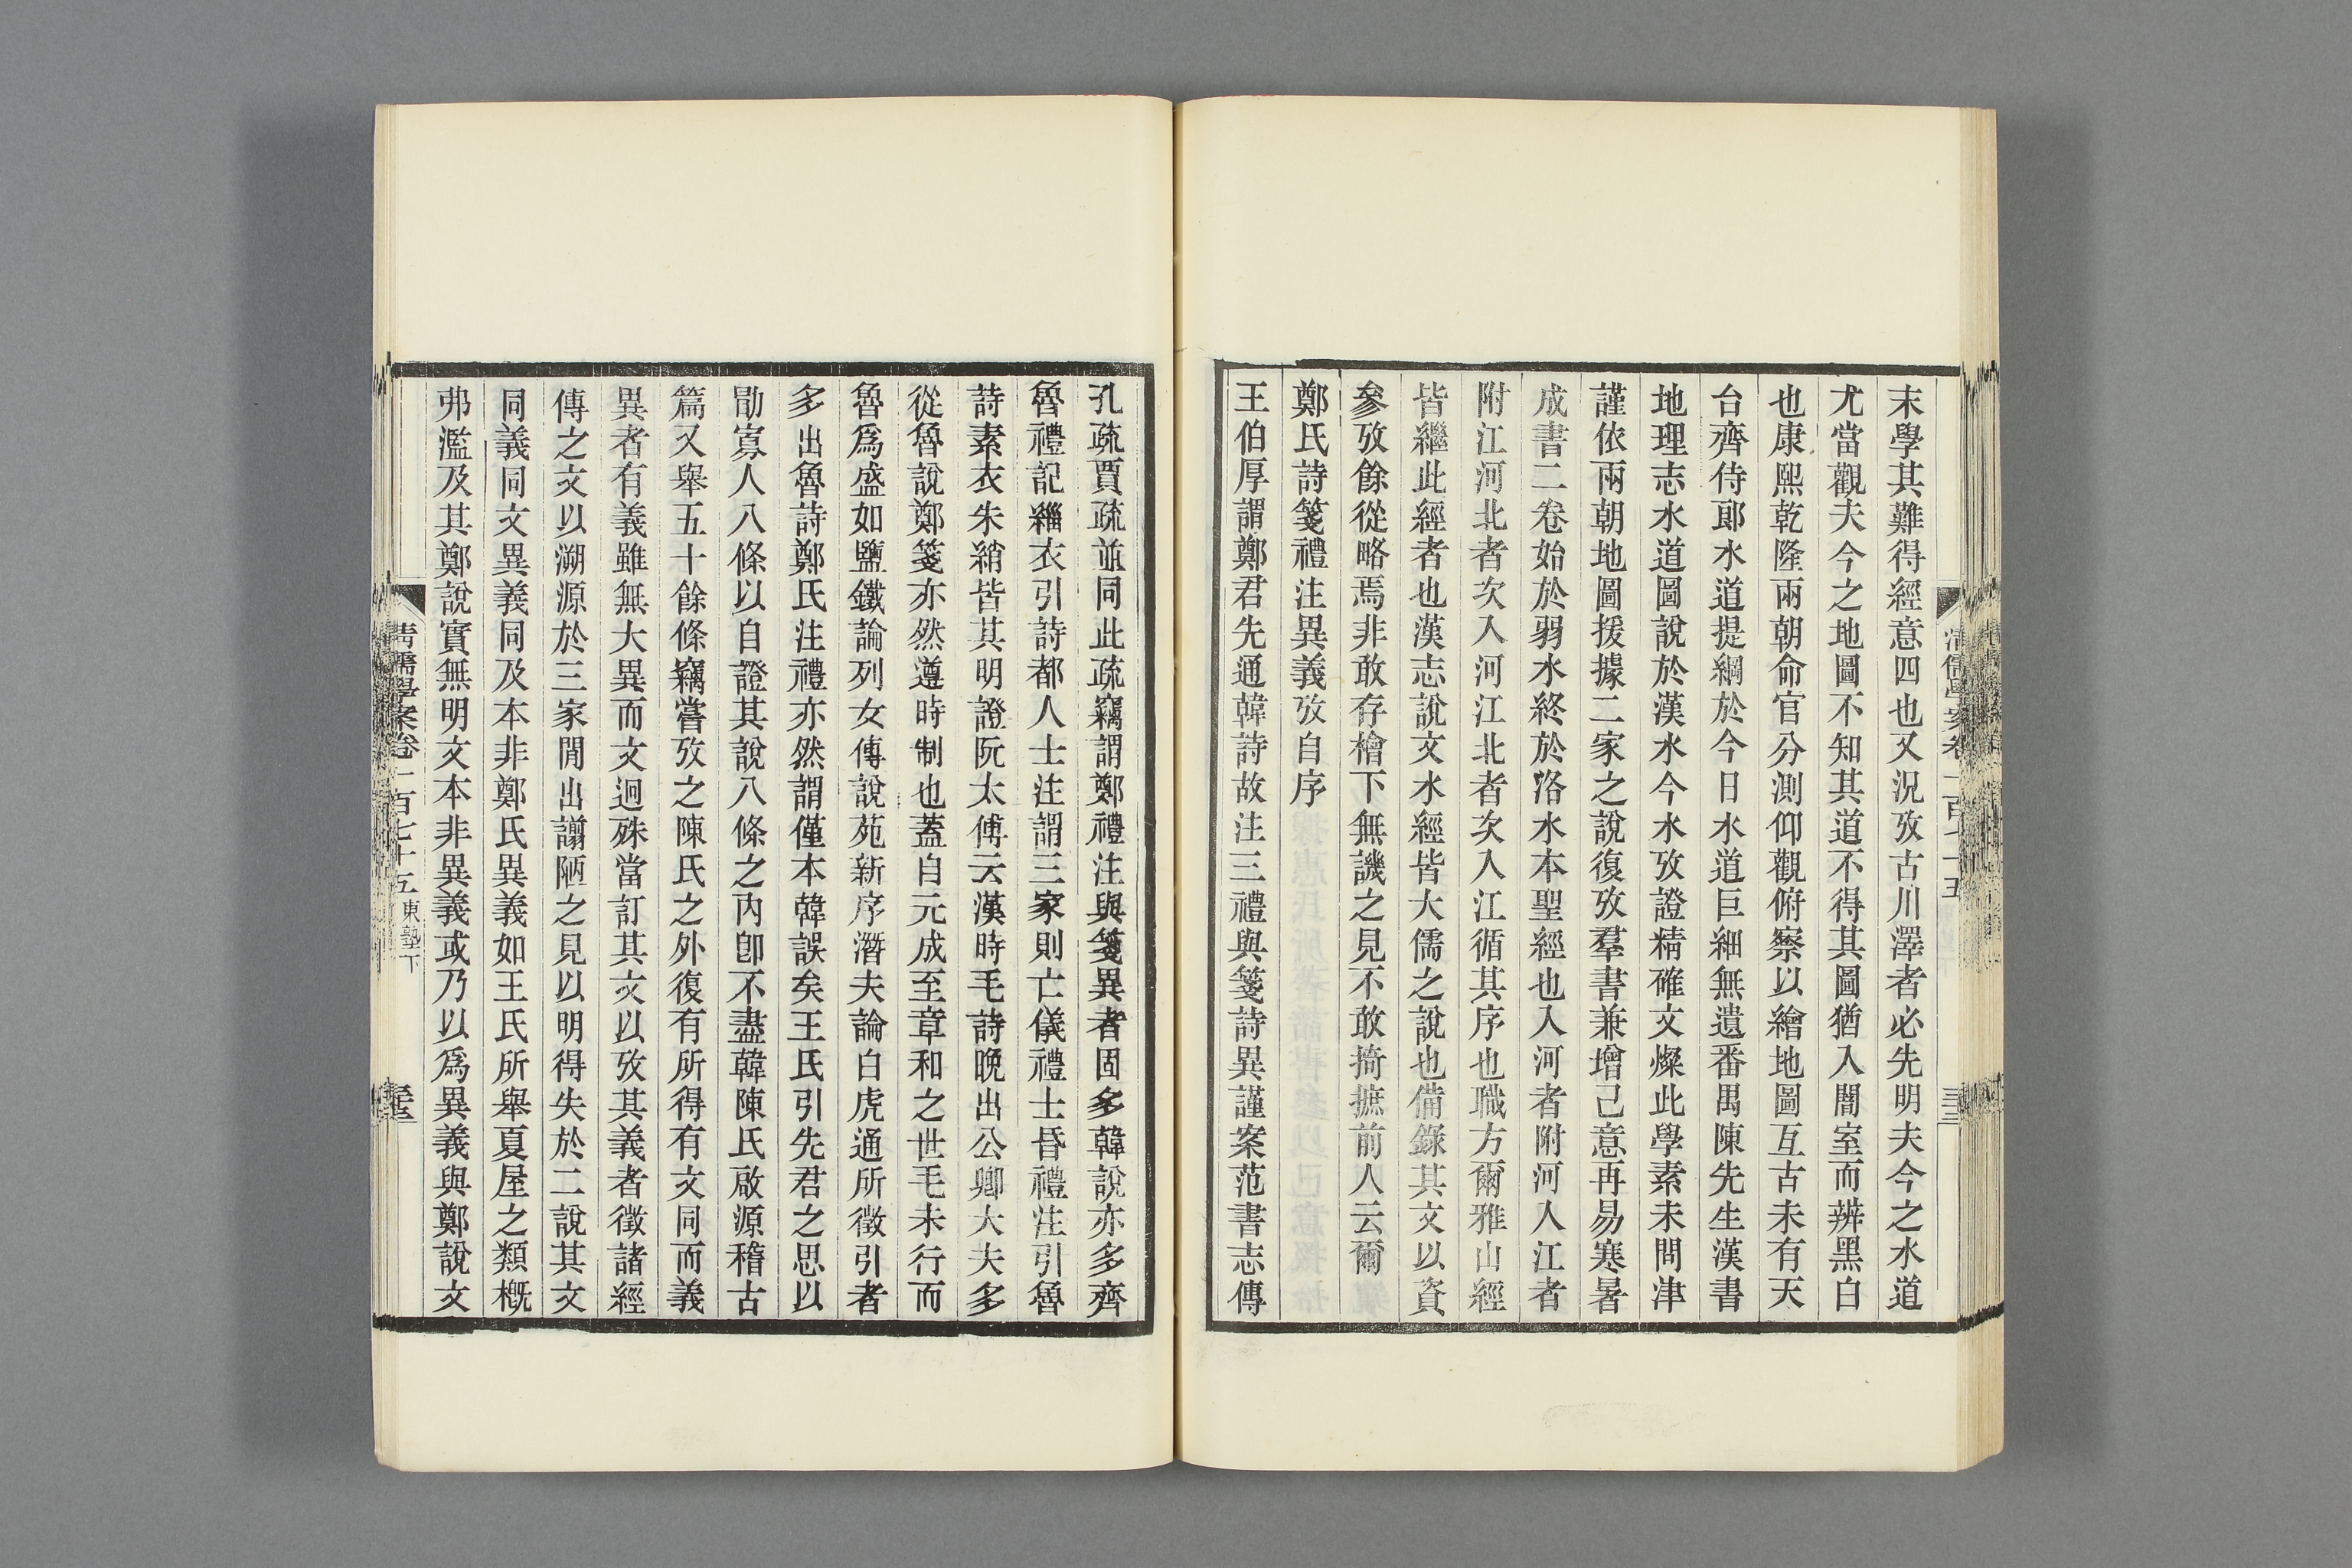 末學其難得經意四也又況攷古川澤者必先明夫今之水道
尤當觀夫今之地圖不知其道不得其圖猶入闇室而辨黑白
也康熙乾隆兩朝命官分測仰觀俯察以繪地圖互古未有天
台齊侍郎水道提綱於今日水道巨細無遺番禺陳先生漢書
地理志水道圖說於漢水今水攷證精確文燦此學素未問津
謹依兩朝地圖援據二家之說復攷羣書兼增己意再易寒暑
成書二卷始於弱水終於洛水本聖經也入河者附河入江者
附江河北者次入河江北者次入江循其序也職方爾雅山經
皆繼此經者也漢志說文水經皆大儒之說也備錄其文以資
參攷餘從略焉非敢存檜下無譏之見不敢掎摭前人云爾
鄭氏詩箋禮注異義攷自序
王伯厚謂鄭君先通韓詩故注三禮與箋詩異謹案范書志傳
孔疏賈疏並同此疏竊謂鄭禮注與箋異者固多韓說亦多齊
魯禮記緇衣引詩都人士注謂三家則亡儀禮士昏禮注引魯
詩素衣朱綃皆其明證阮太傅云漢時毛詩晚出公卿大夫多
從魯說鄭箋亦然遵時制也蓋自元成至章和之世毛未行而
魯爲盛如鹽鐵論列女傳說苑新序潛夫論白虎通所徵引者
多出魯詩鄭氏注禮亦然謂僅本韓誤矣王氏引先君之思以
勖寡人八條以自證其說八條之內卽不盡韓陳氏啟源稽古
篇又舉五十餘條竊嘗攷之陳氏之外復有所得有文同而義
異者有義雖無大異而文迥殊當訂其文以攷其義者徵諸經
傳之文以溯源於三家閒出謭陋之見以明得失於二說其文
同義同文異義同及本非鄭氏異義如王氏所舉夏屋之類槪
弗濫及其鄭說實無明文本非異義或乃以爲異義與鄭說文
清儒學案卷一百七十五 東塾下